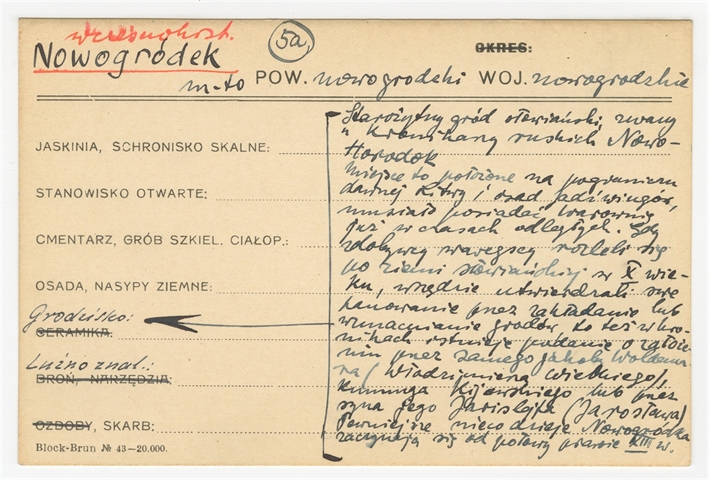 wczesnohist.
Nowogródek
5a
OKRES:
m-to POW. nowogrodzki WOJ. nowogrodzkie
JASKINIA, SCHRONISKO SKALNE:
STANOWISKO OTWARTE:
CMENTARZ, GRÓB SZKIEL. CIAŁOP.:
OSADA, NASYPY ZIEMNE:
Grodzisko:
CERAMIKA:
Luźno znal.:
BROŃ, NARZĘDZIA:
OZDOBY, SKARB:
Block-Brun № 43-20.000.
Starożytny gród słowiański, zwany
u kronikarzy ruskich Nowo-
Horodok
Miejsce to położone na pograniczu
dawnej Litwy i osad Jadźwingów,
musiało posiadać warownię
już w czasach odległych. Gdy
zdobywcy waregscy rozleli się
po ziemi słowiańskiej w X wie-
ku, wszędzie utwierdzali swe
panowanie przez zakładanie lub
wzmacnianie grodów, to też w kro-
nikach istnieje podanie o założe-
niu przez samego jakoby Woldema-
ra (Włodzimierza Wielkiego),
kununga Kijowskiego lub przez
syna jego Jarislejfa (Jarosława)
Pewniejsze dzieje Nowogródka
zaczynają się od połowy prawie XIII w.